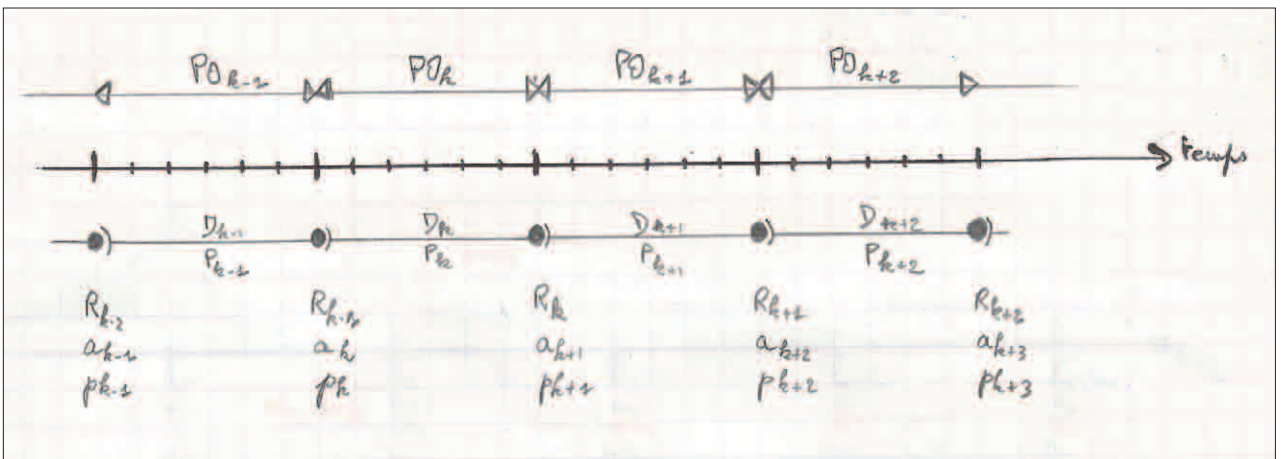 PO_{k-1} PO_k PO_{k+1} PO_{k+2}
temps
D_{k-1} D_k D_{k+1} D_{k+2}
P_{k-1} P_k P_{k+1} P_{k+2}
R_{k-2} R_{k-1} R_k R_{k+1} R_{k+2}
a_{k-1} a_k a_{k+1} a_{k+2} a_{k+3}
p_{k-1} p_k p_{k+1} p_{k+2} p_{k+3}